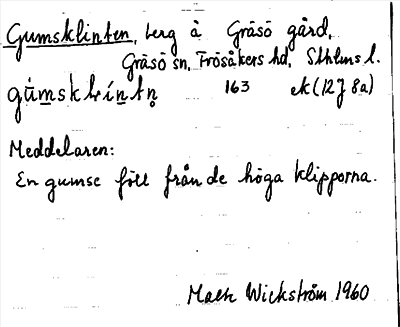 Gumsklinten, berg å Gräsö gård,
Gräsö sn, Frösåkers hd, Sthlms l.
gùmsklíntn̥ 163 ek (12J 8a)
Meddelaren:
En gumse föll från de höga klipporna.
Mats Wickström 1960